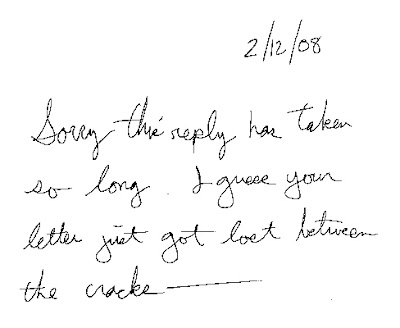 2/12/08
Sorry this reply has taken
so long. I guess your
letter just got lost between
the cracks —